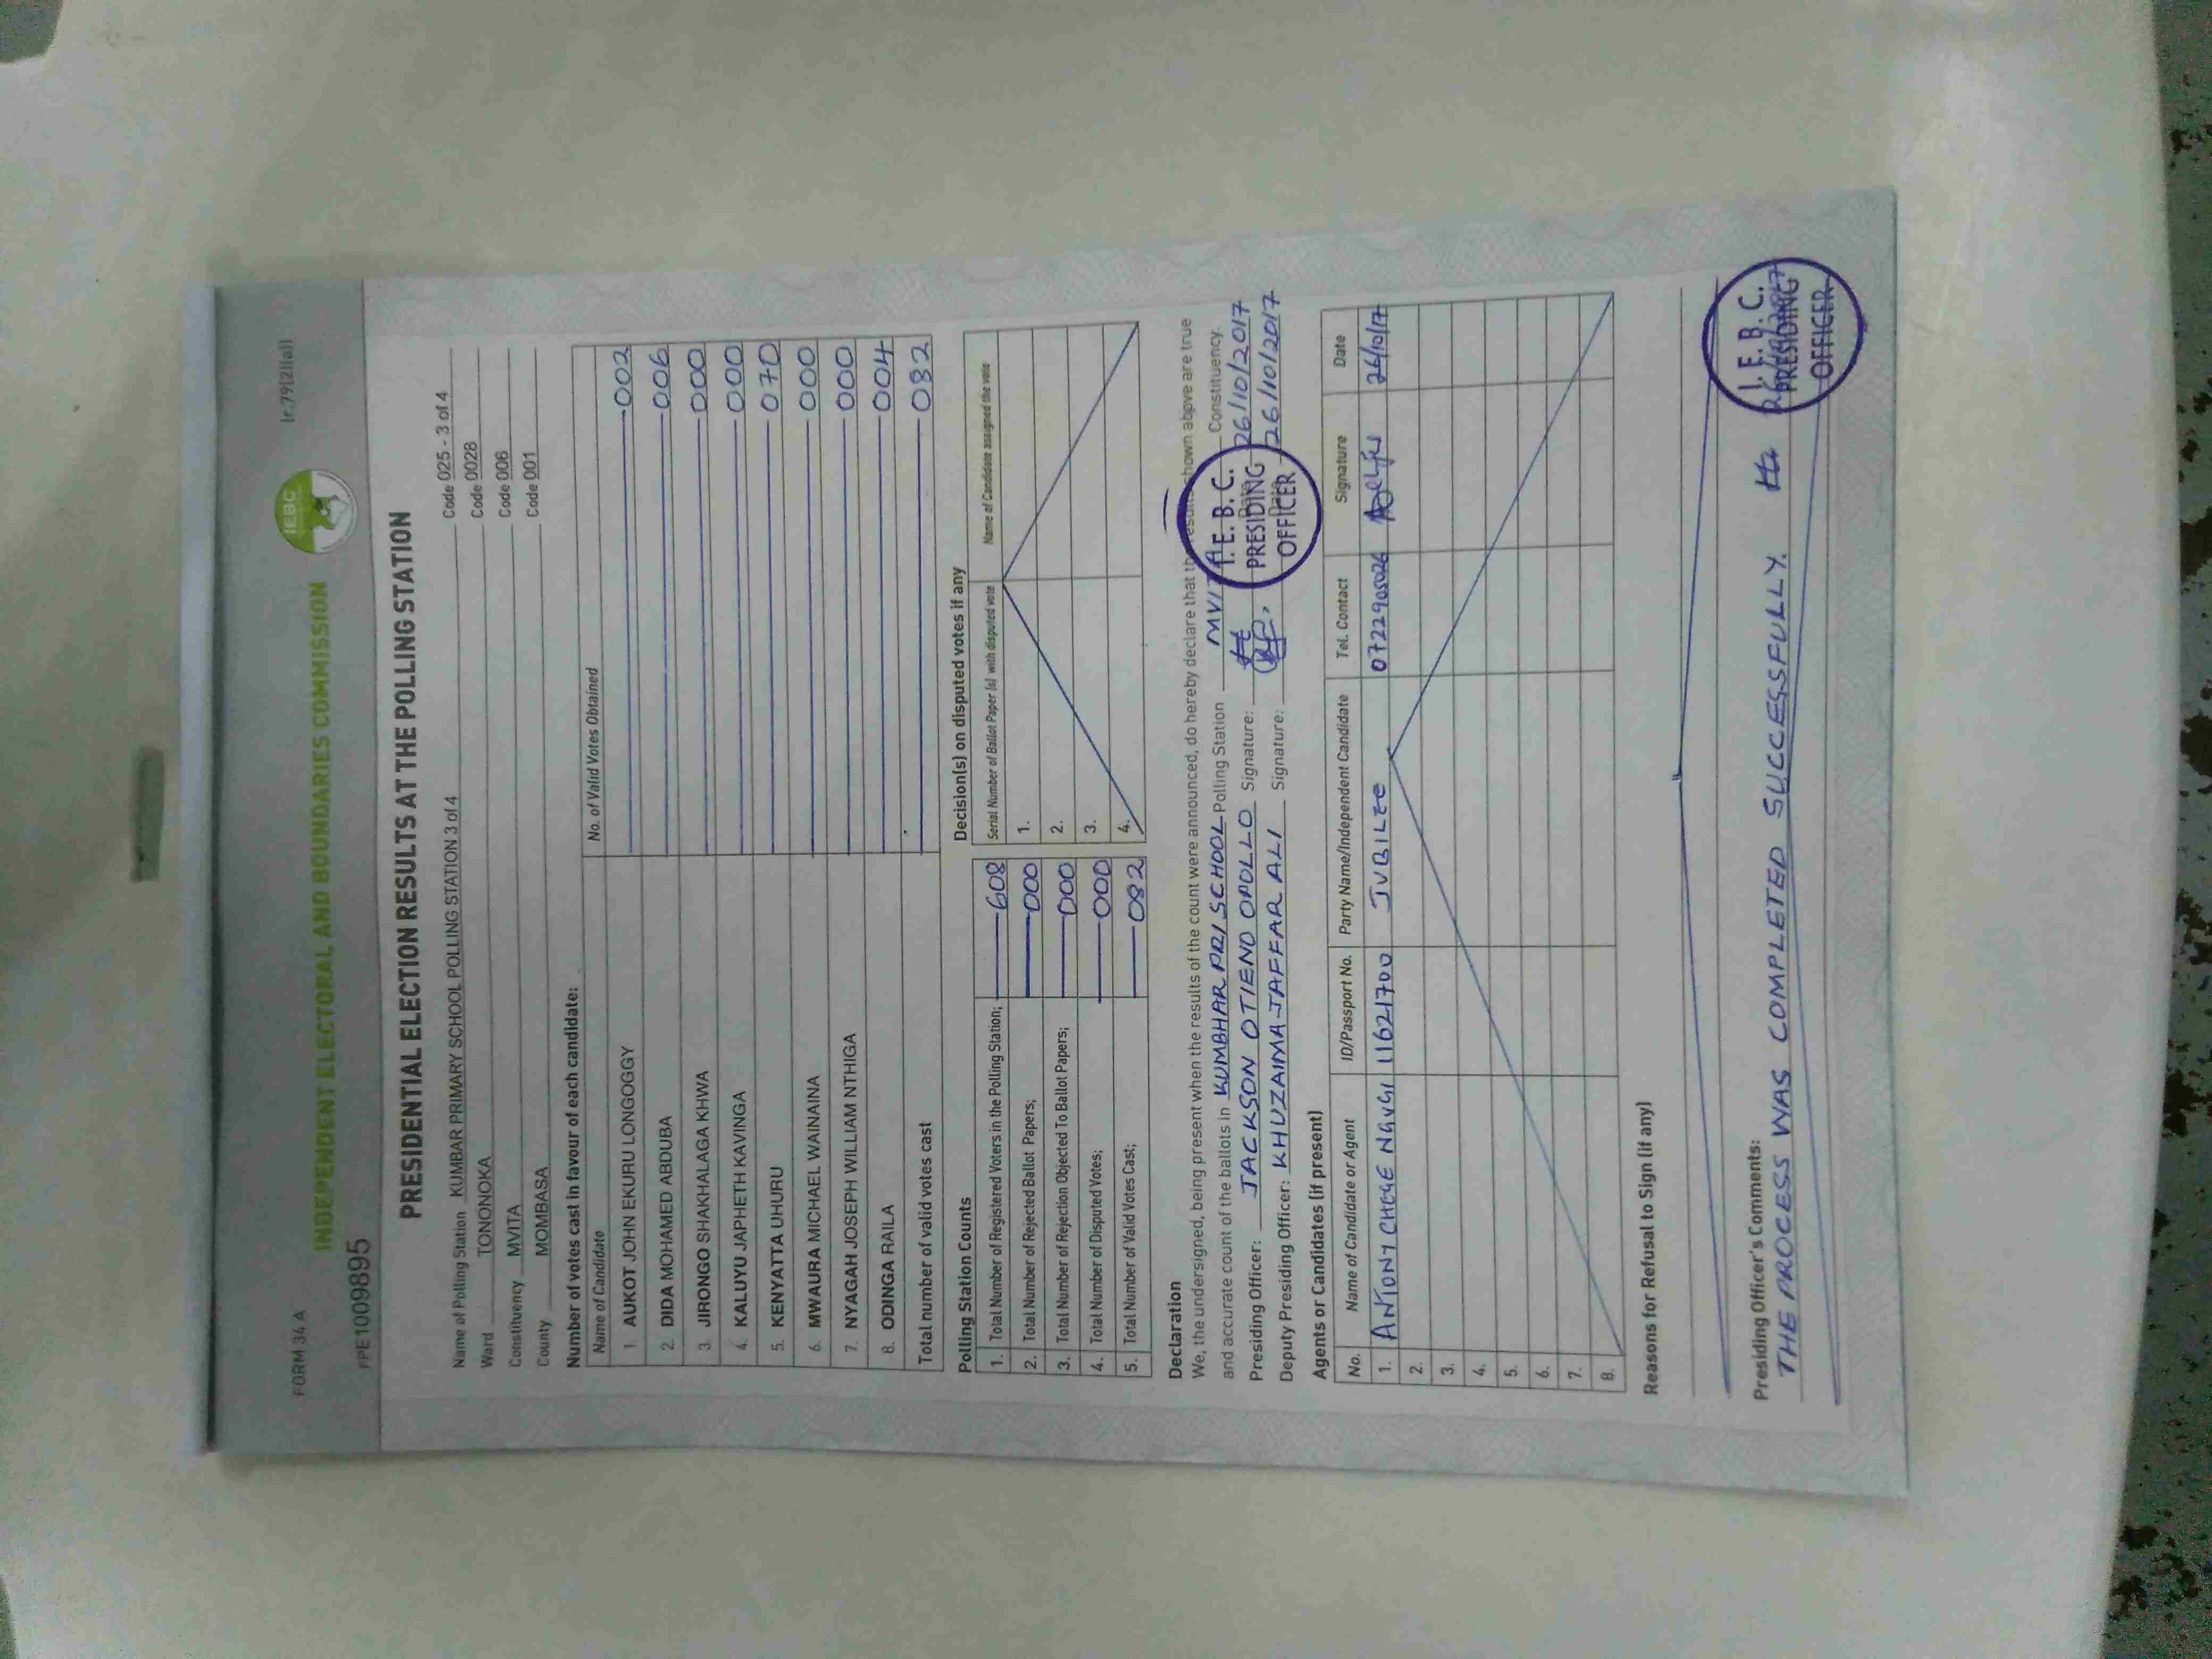 FORM 34 A
Ir.79(2)(a)
INDEPENDENT ELECTORAL AND BOUNDARIES COMMISSION
IEBC
FPE1009895
PRESIDENTIAL ELECTION RESULTS AT THE POLLING STATION
Name of Polling Station KUMBAR PRIMARY SCHOOL POLLING STATION 3 of 4 Code 025 - 3 of 4
Ward TONONOKA Code 0028
Constituency MVITA Code 006
County MOMBASA Code 001
Number of votes cast in favour of each candidate:
Name of Candidate No. of Valid Votes Obtained
1. AUKOT JOHN EKURU LONGOGGY 002
2. DIDA MOHAMED ABDUBA 006
3. JIRONGO SHAKHALAGA KHWA 000
4. KALUYU JAPHETH KAVINGA 000
5. KENYATTA UHURU 070
6. MWAURA MICHAEL WAINAINA 000
7. NYAGAH JOSEPH WILLIAM NTHIGA 000
8. ODINGA RAILA 004
Total number of valid votes cast 082
Polling Station Counts
1. Total Number of Registered Voters in the Polling Station; 608
2. Total Number of Rejected Ballot Papers; 000
3. Total Number of Rejection Objected To Ballot Papers; 000
4. Total Number of Disputed Votes; 000
5. Total Number of Valid Votes Cast; 082
Decision(s) on disputed votes if any
Serial Number of Ballot Paper (s) with disputed vote Name of Candidate assigned the vote
1.
2.
3.
4.
Declaration
We, the undersigned, being present when the results of the count were announced, do hereby declare that the results shown above are true
and accurate count of the ballots in KUMBHAR PRI SCHOOL Polling Station MVITA Constituency.
Presiding Officer: JACKSON OTIENO OPOLLO Signature: Date 26/10/2017
Deputy Presiding Officer: KHUZAIMA JAFFAR ALI Signature: Date 26/10/2017
I.E.B.C.
PRESIDING
OFFICER
Agents or Candidates (if present)
No. Name of Candidate or Agent ID/Passport No. Party Name/Independent Candidate Tel. Contact Signature Date
1. ANTONY CHEGE NGUGI 11621700 JUBILEE 0722905026 26/10/17
2.
3.
4.
5.
6.
7.
8.
Reasons for Refusal to Sign (if any)
Presiding Officer's Comments:
THE PROCESS WAS COMPLETED SUCCESSFULLY.
I.E.B.C.
PRESIDING
OFFICER